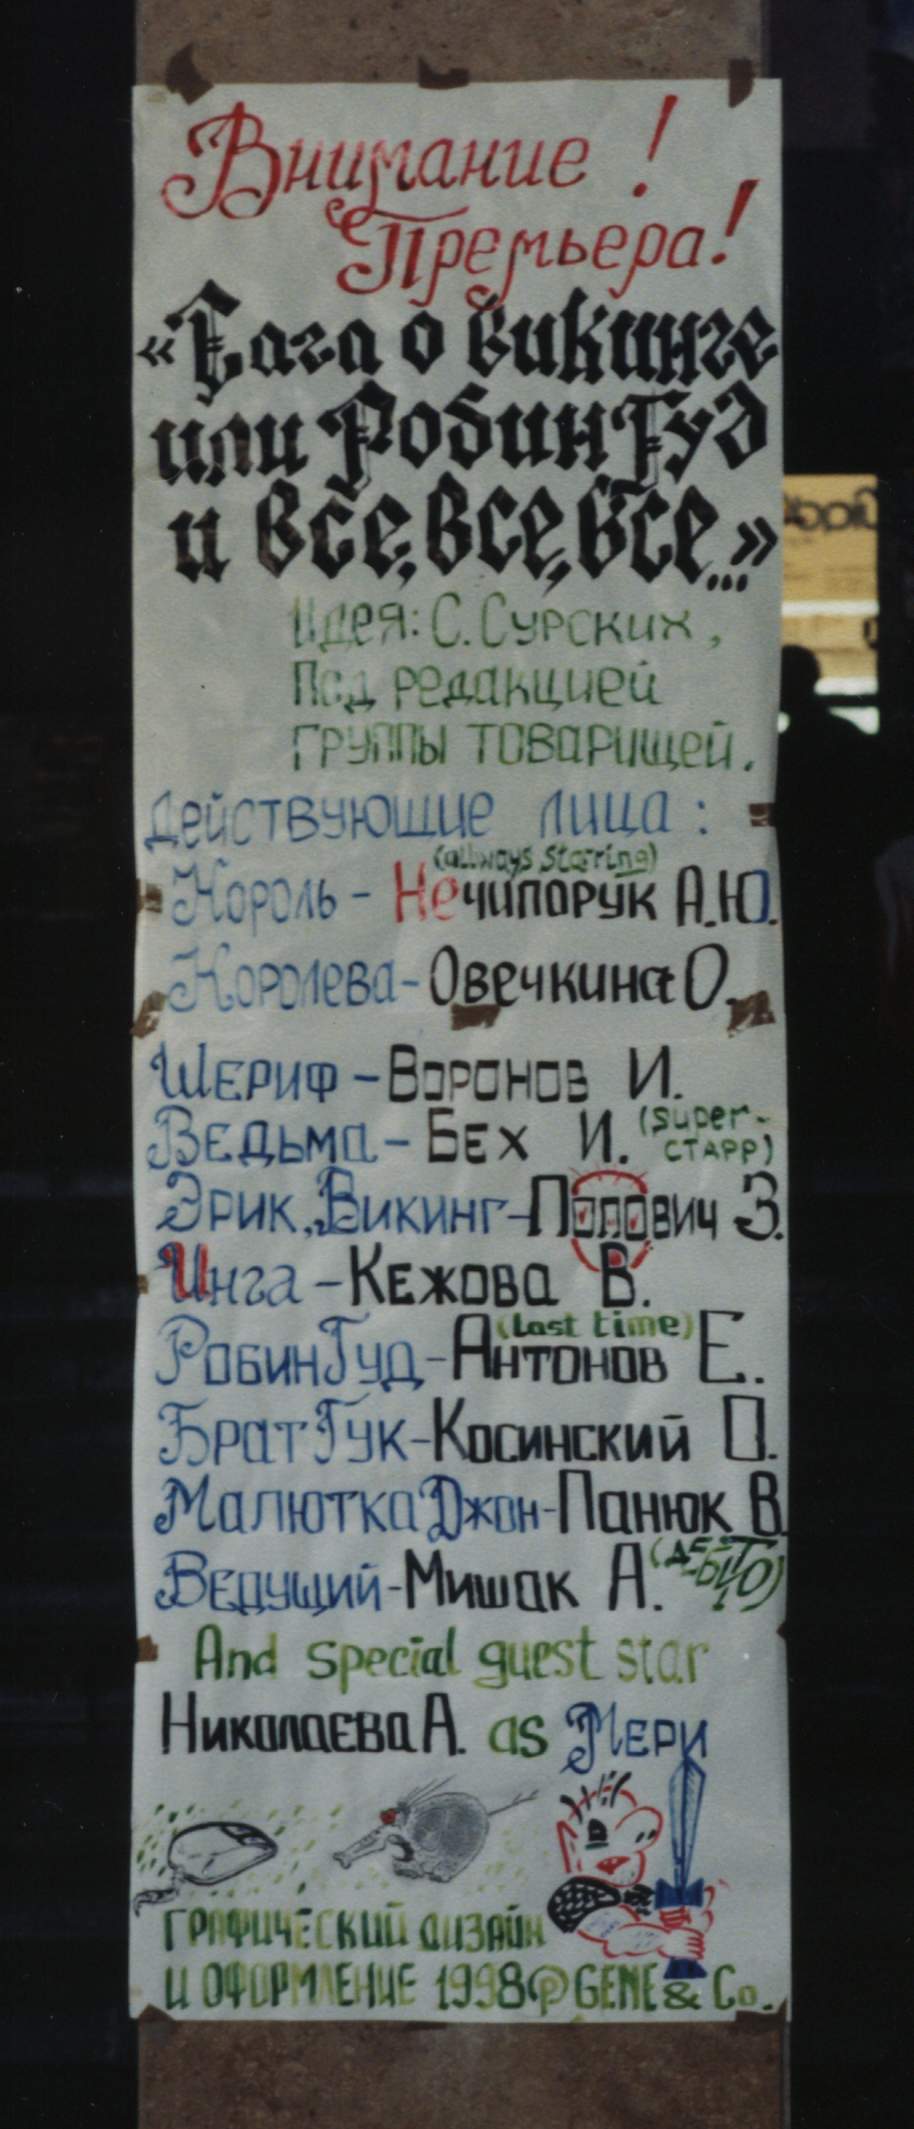 Внимание!
Премьера!
«Сага о викинге
или Робин Гуд
и все, все, все...»
Идея: С. Сурских,
Под редакцией
группы товарищей.
Действующие лица:
(allways starring)
Король - Нечипорук А.Ю.
Королева - Овечкина О.
Шериф - Воронов И.
Ведьма - Бех И. (super-
СТАРР)
Эрик, Викинг - Попович З.
Инга - Кежова В.
(Last time)
Робин Гуд - Антонов Е.
Брат Тук - Косинский О.
Малютка Джон - Панюк В.
Ведущий - Мишак А. (ДЕ-
БЮТ)
And special guest star
Николаева А. as Мери
Графический дизайн
и оформление 1998 ℗ GENE & Co.